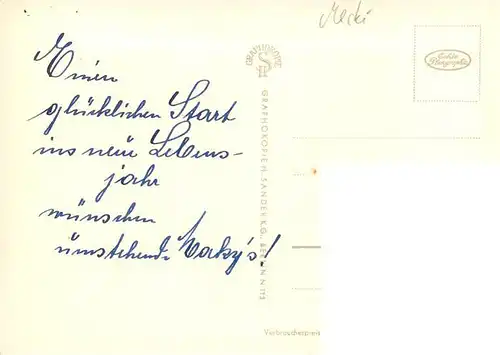 Mecki
GRAPHOKOPIE
HS
Echte
Photographie
Einen
glücklichen Start
ins neue Lebens-
jahr
wünschen
umstehende Maky's!
GRAPHOKOPIE H. SANDER K.G., BERLIN N 113
Verbraucherpreis